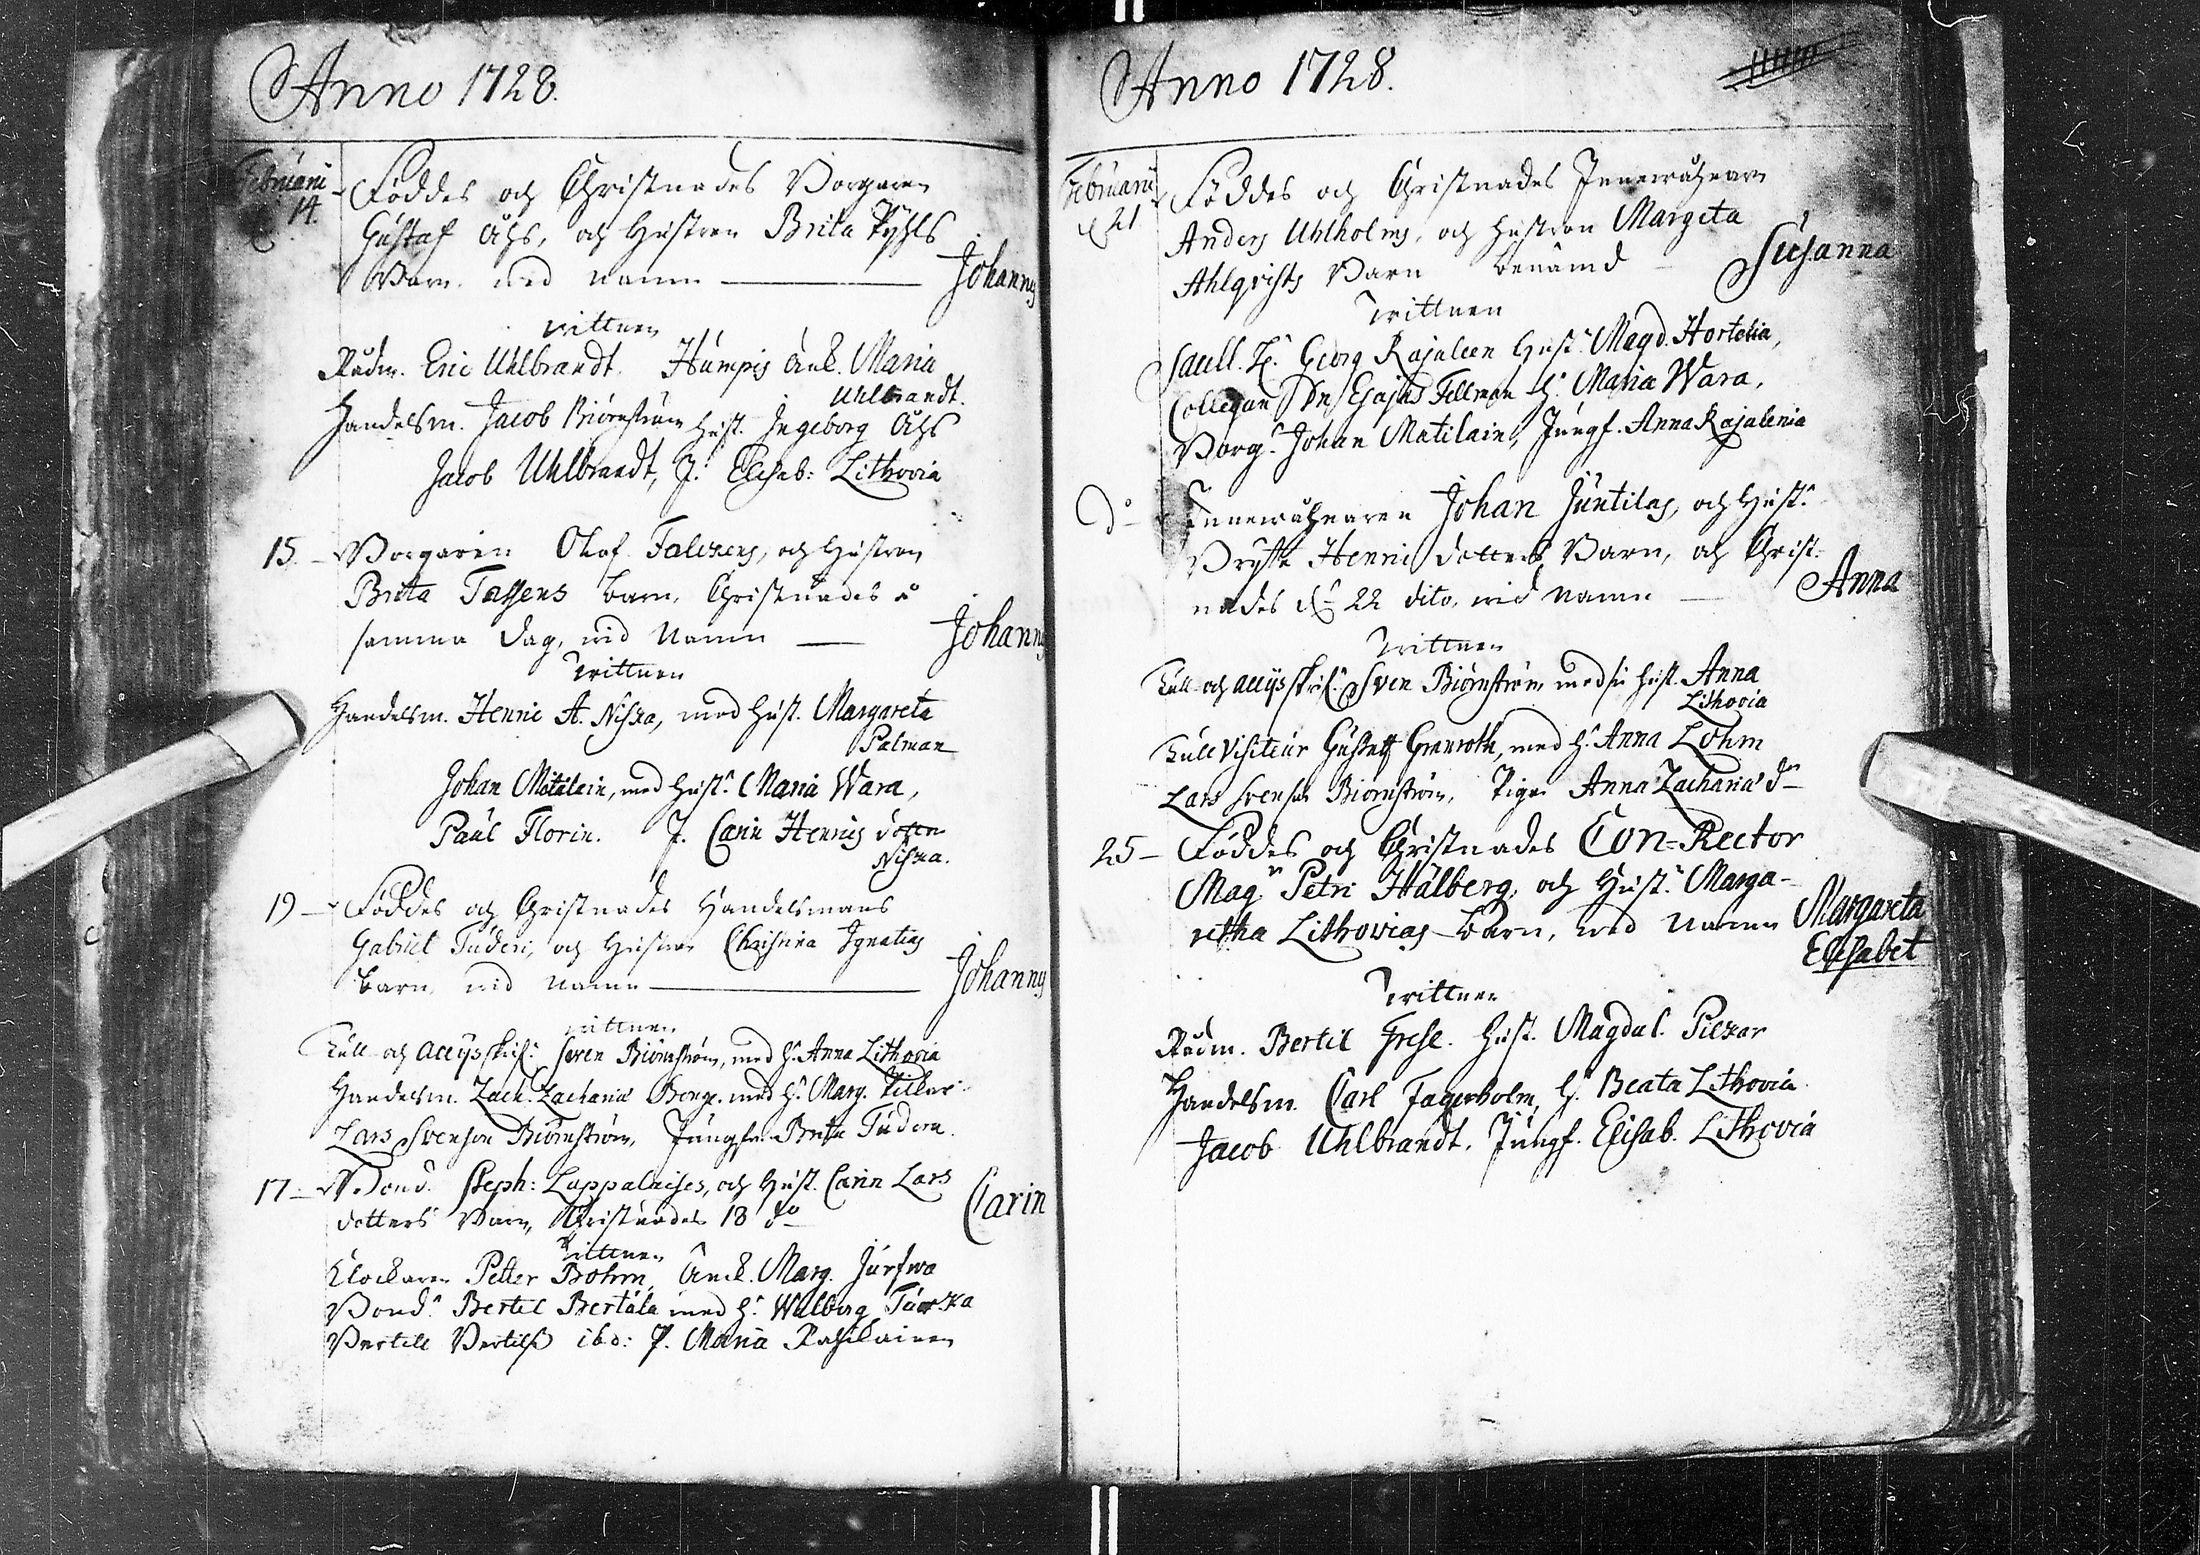 Anno 1728.
Februarii
14.
Föddes och Christnades Borgaren
Gustaf Åhs, och Hustron Brita Pyhls
Barn med namn Johannes
wittnen
Rådm. Eric Uhlbrandt. Humpis Änk. Maria
Uhlbrandt.
Handelsm. Jacob Biörnström Hust. Ingeborg Åhs
Jacob Uhlbrandt, J. Elisab: Lithovia
15. Borgaren Olof Falckens, och Hustron
Brita Tassens barn, Christnades
samma dag, wid Namn Johannes
Wittnen
Handelsm. Henric A. Niska, med Hust. Margareta
Palman
Johan Matilain, med Hust. Maria Wara,
Paul Florin. J. Carin Henrics dotter
Niska.
19 Föddes och Christnades Handelsmans
Gabriel Tuderi, och Hustrus Christina Ignatius
barn, wid namn Johannes
wittnen
Tull- och Accijs skrif: Sven Biörnström, med H. Anna Lithovia
Handelsm. Zach: Zachariæ Borge. med H. Marg.
Lars Svenson Biörnström, Jungfr. Brita Tudera.
17 Bond. Steph: Lappalaises, och Hust. Carin Lars
dotters Barn, Christnades 18 do Carin
Wittnen
Klockaren Petter Bohm, Änck. Marg. Jurfwa
Bond. Bertil Bertula med H. Walborg Turska
Bertill Bertilss. ibd: P. Maria
Anno 1728.
Februarii
d. 21
Föddes och Christnades Innewåhnarn
Anders Uhlholms, och Hustron Margeta
Ahlqvists Barn benämd Susanna
Wittnen
Georg Rajaleen Hust. Magd. Hortelia,
Collegan Dn Esajas Fellman H. Maria Wara,
Borg. Johan Matilain, Jungf. Anna Rajalenia
Do Innewåhnaren Johan Juntilas, och Hust.
Brytta Henrics dotters Barn, och Christ-
nades d. 22 dito, wid Namn Anna
Wittnen
Tull- och accijs skrif. Sven Biörnström med sin hust. Anna
Lithovia
Tull Visiteur Gustaff Granroth, med H. Anna Lohm
Lars Svenson Biörnström, Pigan Anna Zacharias dr
25 Föddes och Christnades Con-Rector
Mag. Petri Hålberg, och Hust. Marga-
retha Lithovias Barn, wid Namn Margareta
Elisabet
Wittnen
Rådm. Bertil Frese. Hust. Magdal. Piezar
Handelsm. Carl Fagerholm, H. Beata Lithovia
Jacob Uhlbrandt. Jungf. Elisab. Lithovia